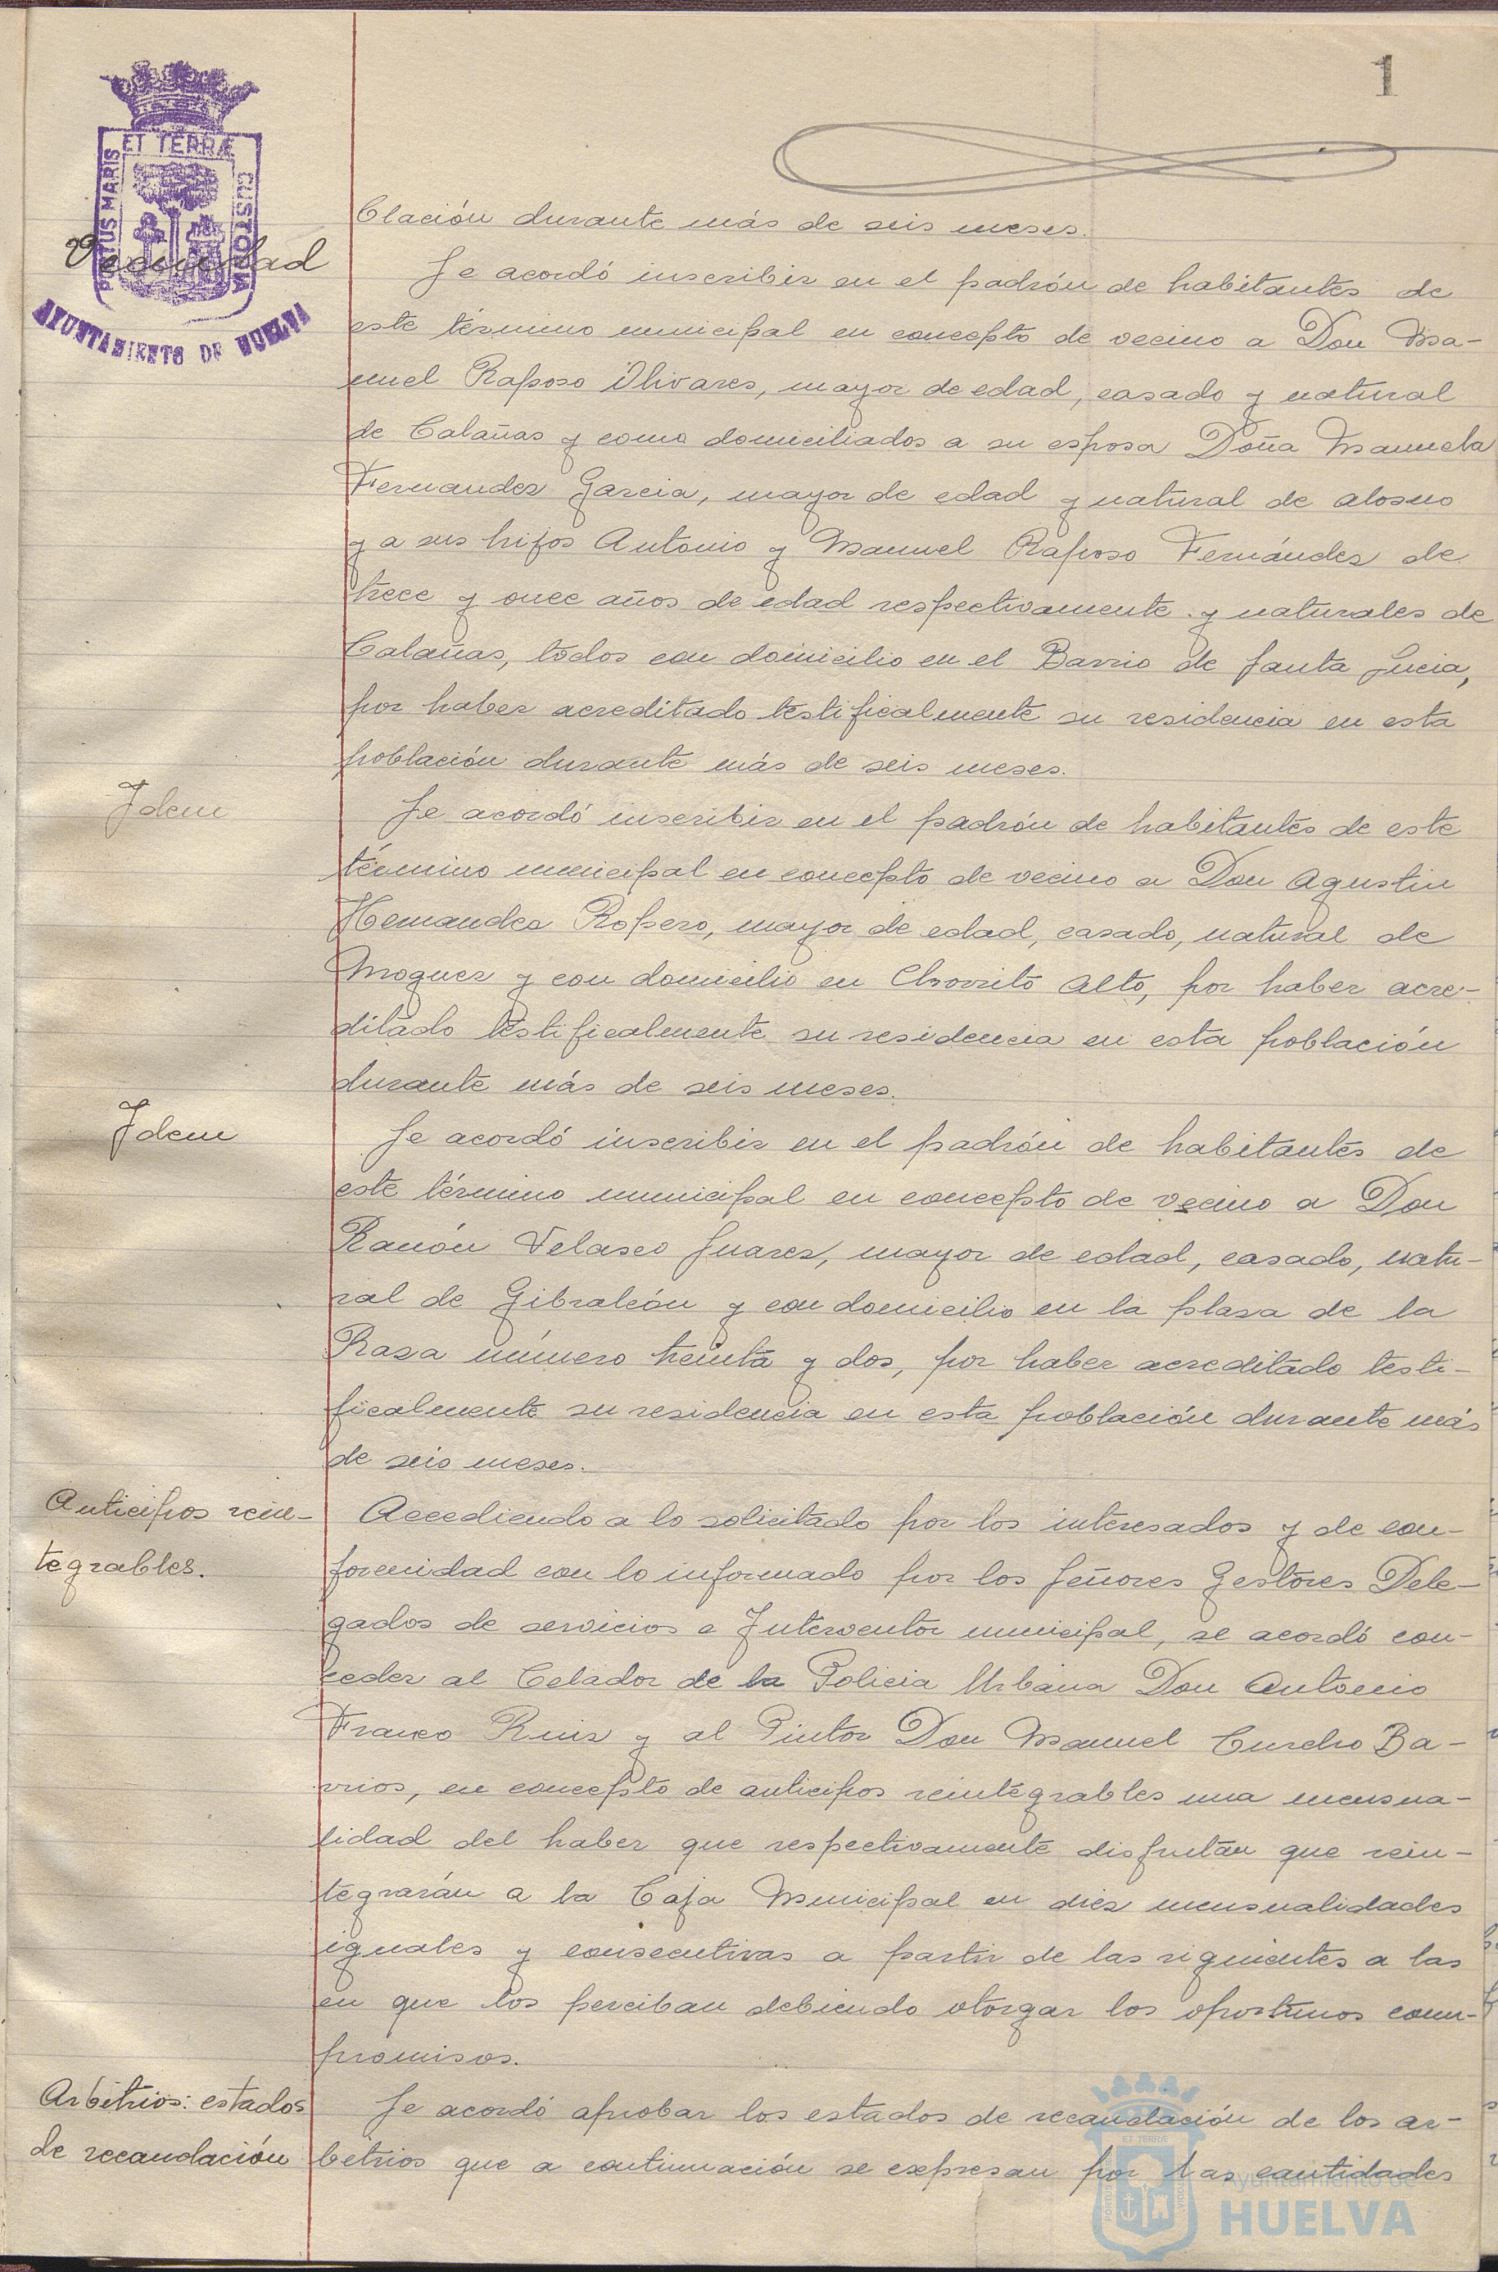 1
ET TERRÆ
PORTUS MARIS
CUSTODIA
AYUNTAMIENTO DE HUELVA
Vecindad
blación durante más de seis meses.
Se acordó inscribir en el padrón de habitantes de
este término municipal en concepto de vecino a Don Ma-
nuel Raposo Olivares, mayor de edad, casado y natural
de Calañas y como domiciliados a su esposa Doña Manuela
Fernandez Garcia, mayor de edad y natural de Alosno
y a sus hijos Antonio y Manuel Raposo Fernández de
trece y once años de edad respectivamente y naturales de
Calañas, todos con domicilio en el Barrio de Santa Lucia,
por haber acreditado testificalmente su residencia en esta
población durante más de seis meses.
Idem
Se acordó inscribir en el padrón de habitantes de este
término municipal en concepto de vecino a Don Agustin
Hernandez Ropero, mayor de edad, casado, natural de
Moguer y con domicilio en Chorrito Alto, por haber acre-
ditado testificalmente su residencia en esta población
durante más de seis meses.
Idem
Se acordó inscribir en el padrón de habitantes de
este término municipal en concepto de vecino a Don
Ramón Velasco Juarez, mayor de edad, casado, natu-
ral de Gibraleón y con domicilio en la plaza de la
Raza número treinta y dos, por haber acreditado testi-
ficalmente su residencia en esta población durante más
de seis meses.
Anticipos rein-
tegrables.
Accediendo a lo solicitado por los interesados y de con-
formidad con lo informado por los Señores Gestores Dele-
gados de servicios e Interventor municipal, se acordó con-
ceder al Celador de la Policia Urbana Don Antonio
Franco Ruiz y al Pintor Don Manuel Curcho Ba-
rrios, en concepto de anticipos reintegrables una mensua-
lidad del haber que respectivamente disfrutan que rein-
tegrarán a la Caja Municipal en diez mensualidades
iguales y consecutivas a partir de las siguientes a las
en que los perciban debiendo otorgar los oportunos com-
promisos.
Arbitrios: estados
de recaudación
Se acordó aprobar los estados de recaudación de los ar-
bitrios que a continuación se expresan por las cantidades
Ayuntamiento de
HUELVA